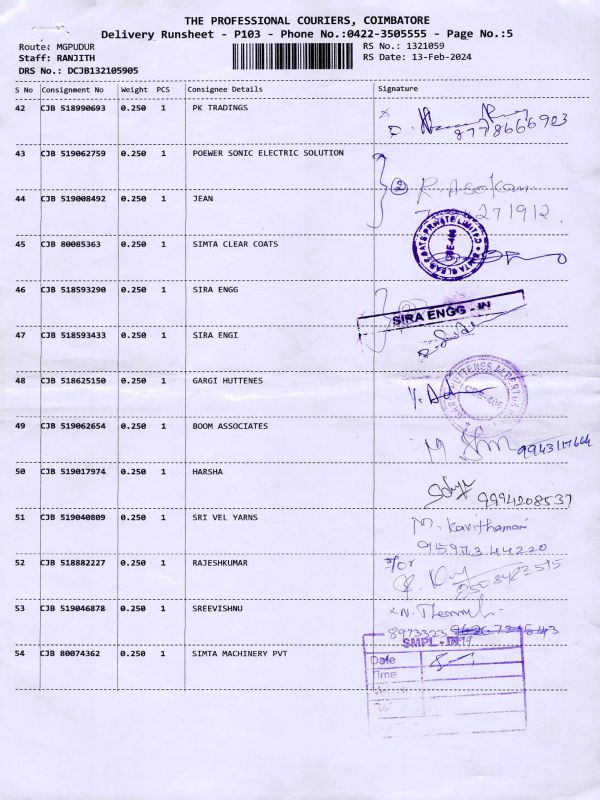 THE PROFESSIONAL COURIERS, COIMBATORE
Delivery Runsheet - P103 - Phone No.:0422-3505555 - Page No.:5
Route: MGPUDUR RS No.: 1321059
Staff: RANJITH RS Date: 13-Feb-2024
DRS No.: DCJB132105905
S No Consignment No Weight PCS Consignee Details Signature
42 CJB 518990693 0.250 1 PK TRADINGS
8778666903
43 CJB 519062759 0.250 1 POEWER SONIC ELECTRIC SOLUTION
2 R. Asokan
44 CJB 519008492 0.250 1 JEAN
271912
45 CJB 80085363 0.250 1 SIMTA CLEAR COATS
SIMTA CLEAR COATS PRIVATE LIMITED
46 CJB 518593290 0.250 1 SIRA ENGG
SIRA ENGG - IN
47 CJB 518593433 0.250 1 SIRA ENGI
48 CJB 518625150 0.250 1 GARGI HUTTENES
49 CJB 519062654 0.250 1 BOOM ASSOCIATES
50 CJB 519017974 0.250 1 HARSHA
9994208537
51 CJB 519040809 0.250 1 SRI VEL YARNS
M. Kavithamani
52 CJB 518882227 0.250 1 RAJESHKUMAR
53 CJB 519046878 0.250 1 SREEVISHNU
8973323
54 CJB 80074362 0.250 1 SIMTA MACHINERY PVT
SMPL - IN
Date
Time